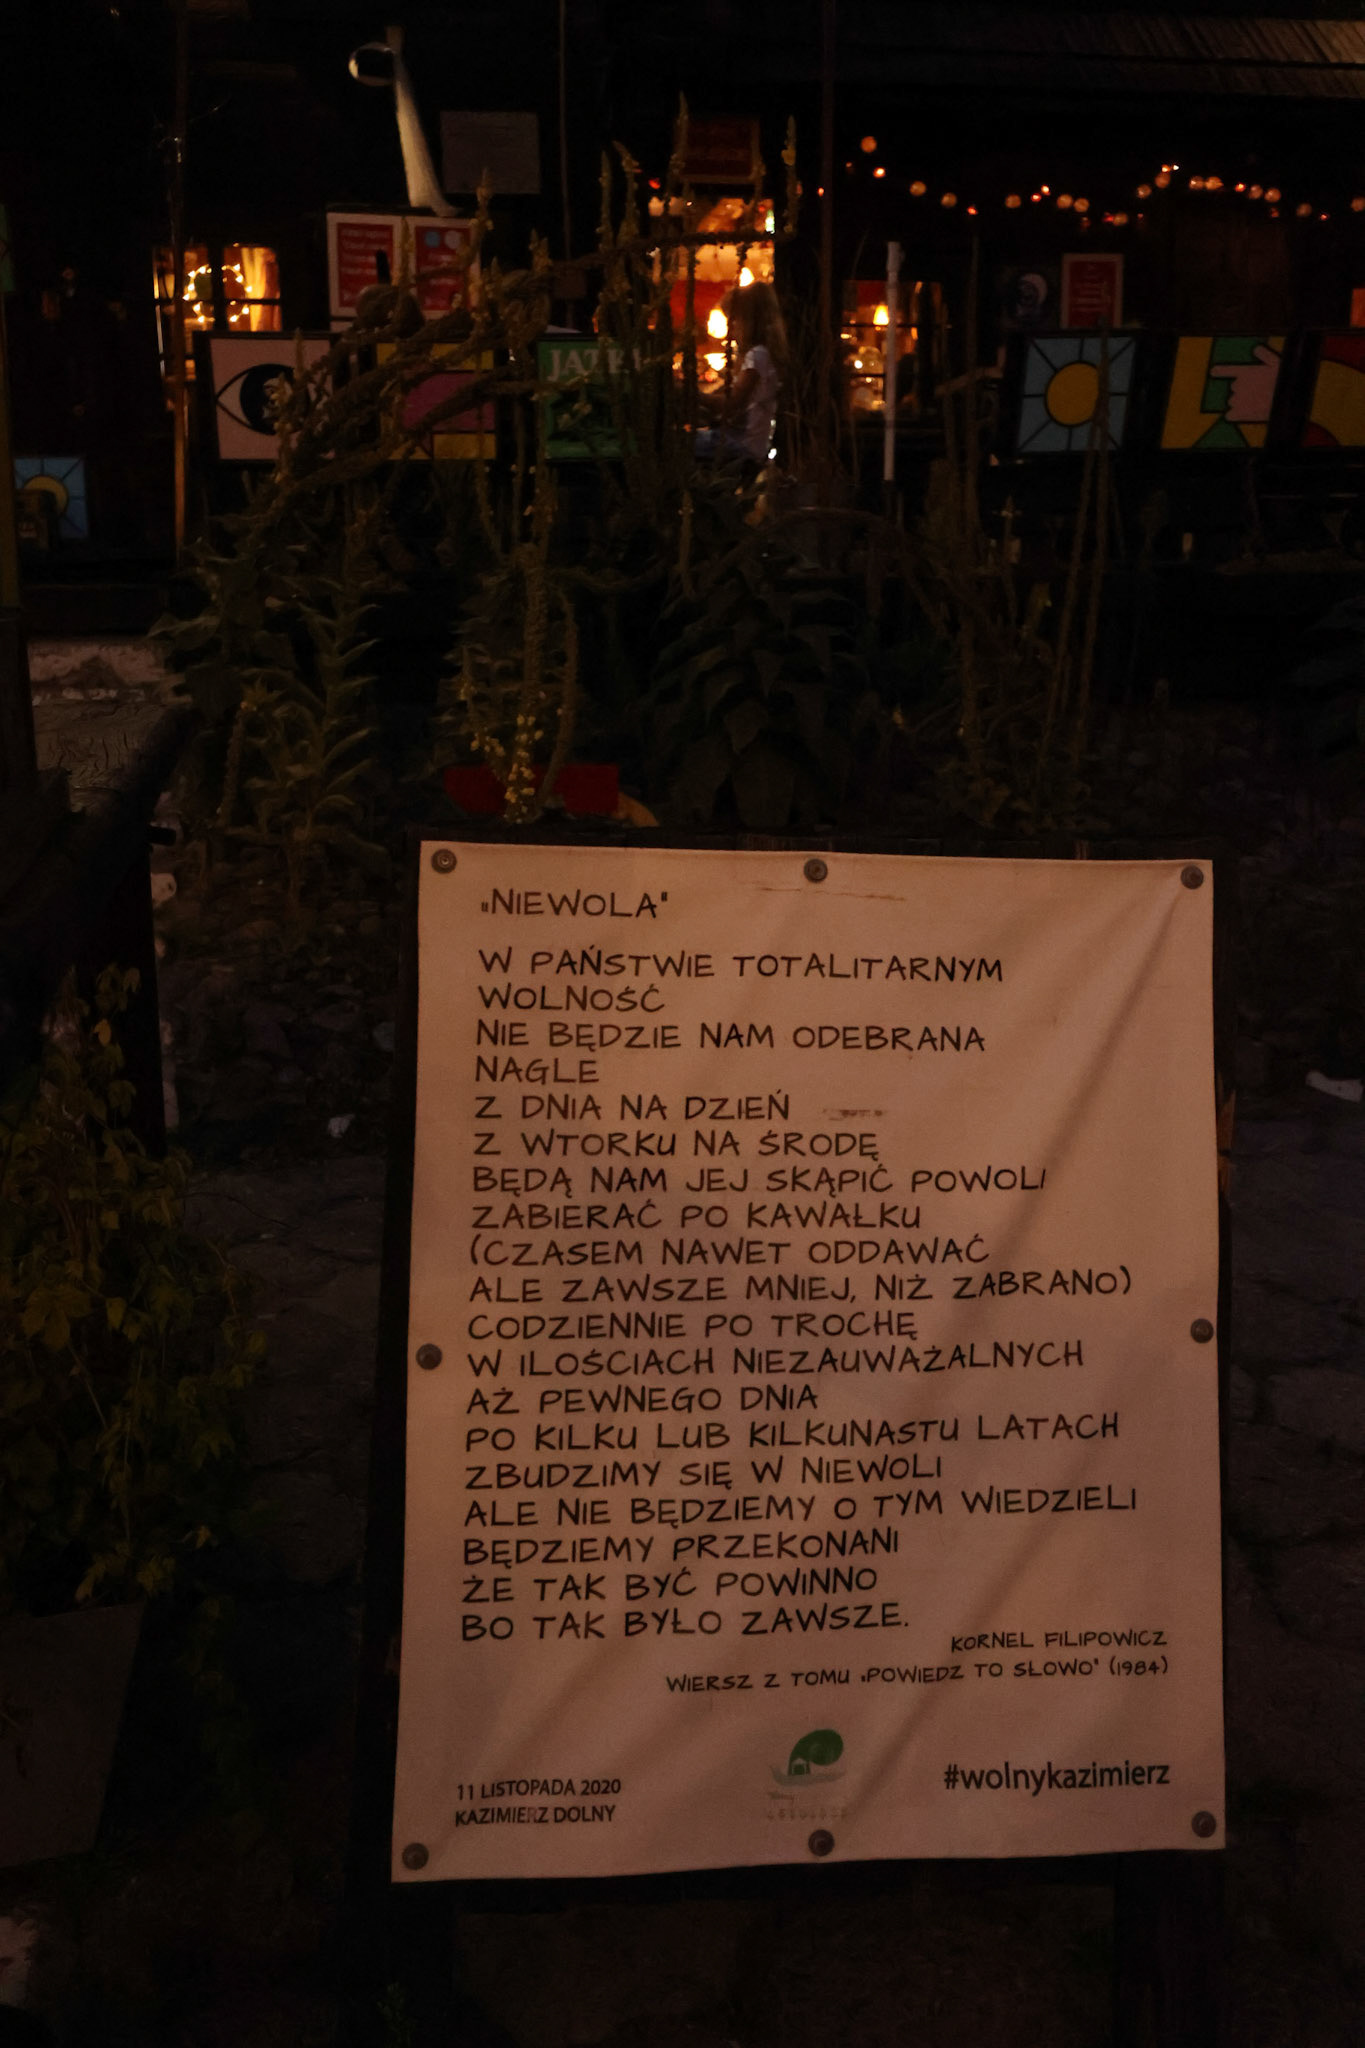 JATKI
„NIEWOLA"
W PAŃSTWIE TOTALITARNYM
WOLNOŚĆ
NIE BĘDZIE NAM ODEBRANA
NAGLE
Z DNIA NA DZIEŃ
Z WTORKU NA ŚRODĘ
BĘDĄ NAM JEJ SKĄPIĆ POWOLI
ZABIERAĆ PO KAWAŁKU
(CZASEM NAWET ODDAWAĆ
ALE ZAWSZE MNIEJ, NIŻ ZABRANO)
CODZIENNIE PO TROCHĘ
W ILOŚCIACH NIEZAUWAŻALNYCH
AŻ PEWNEGO DNIA
PO KILKU LUB KILKUNASTU LATACH
ZBUDZIMY SIĘ W NIEWOLI
ALE NIE BĘDZIEMY O TYM WIEDZIELI
BĘDZIEMY PRZEKONANI
ŻE TAK BYĆ POWINNO
BO TAK BYŁO ZAWSZE.
KORNEL FILIPOWICZ
WIERSZ Z TOMU „POWIEDZ TO SŁOWO" (1984)
11 LISTOPADA 2020
KAZIMIERZ DOLNY
#wolnykazimierz